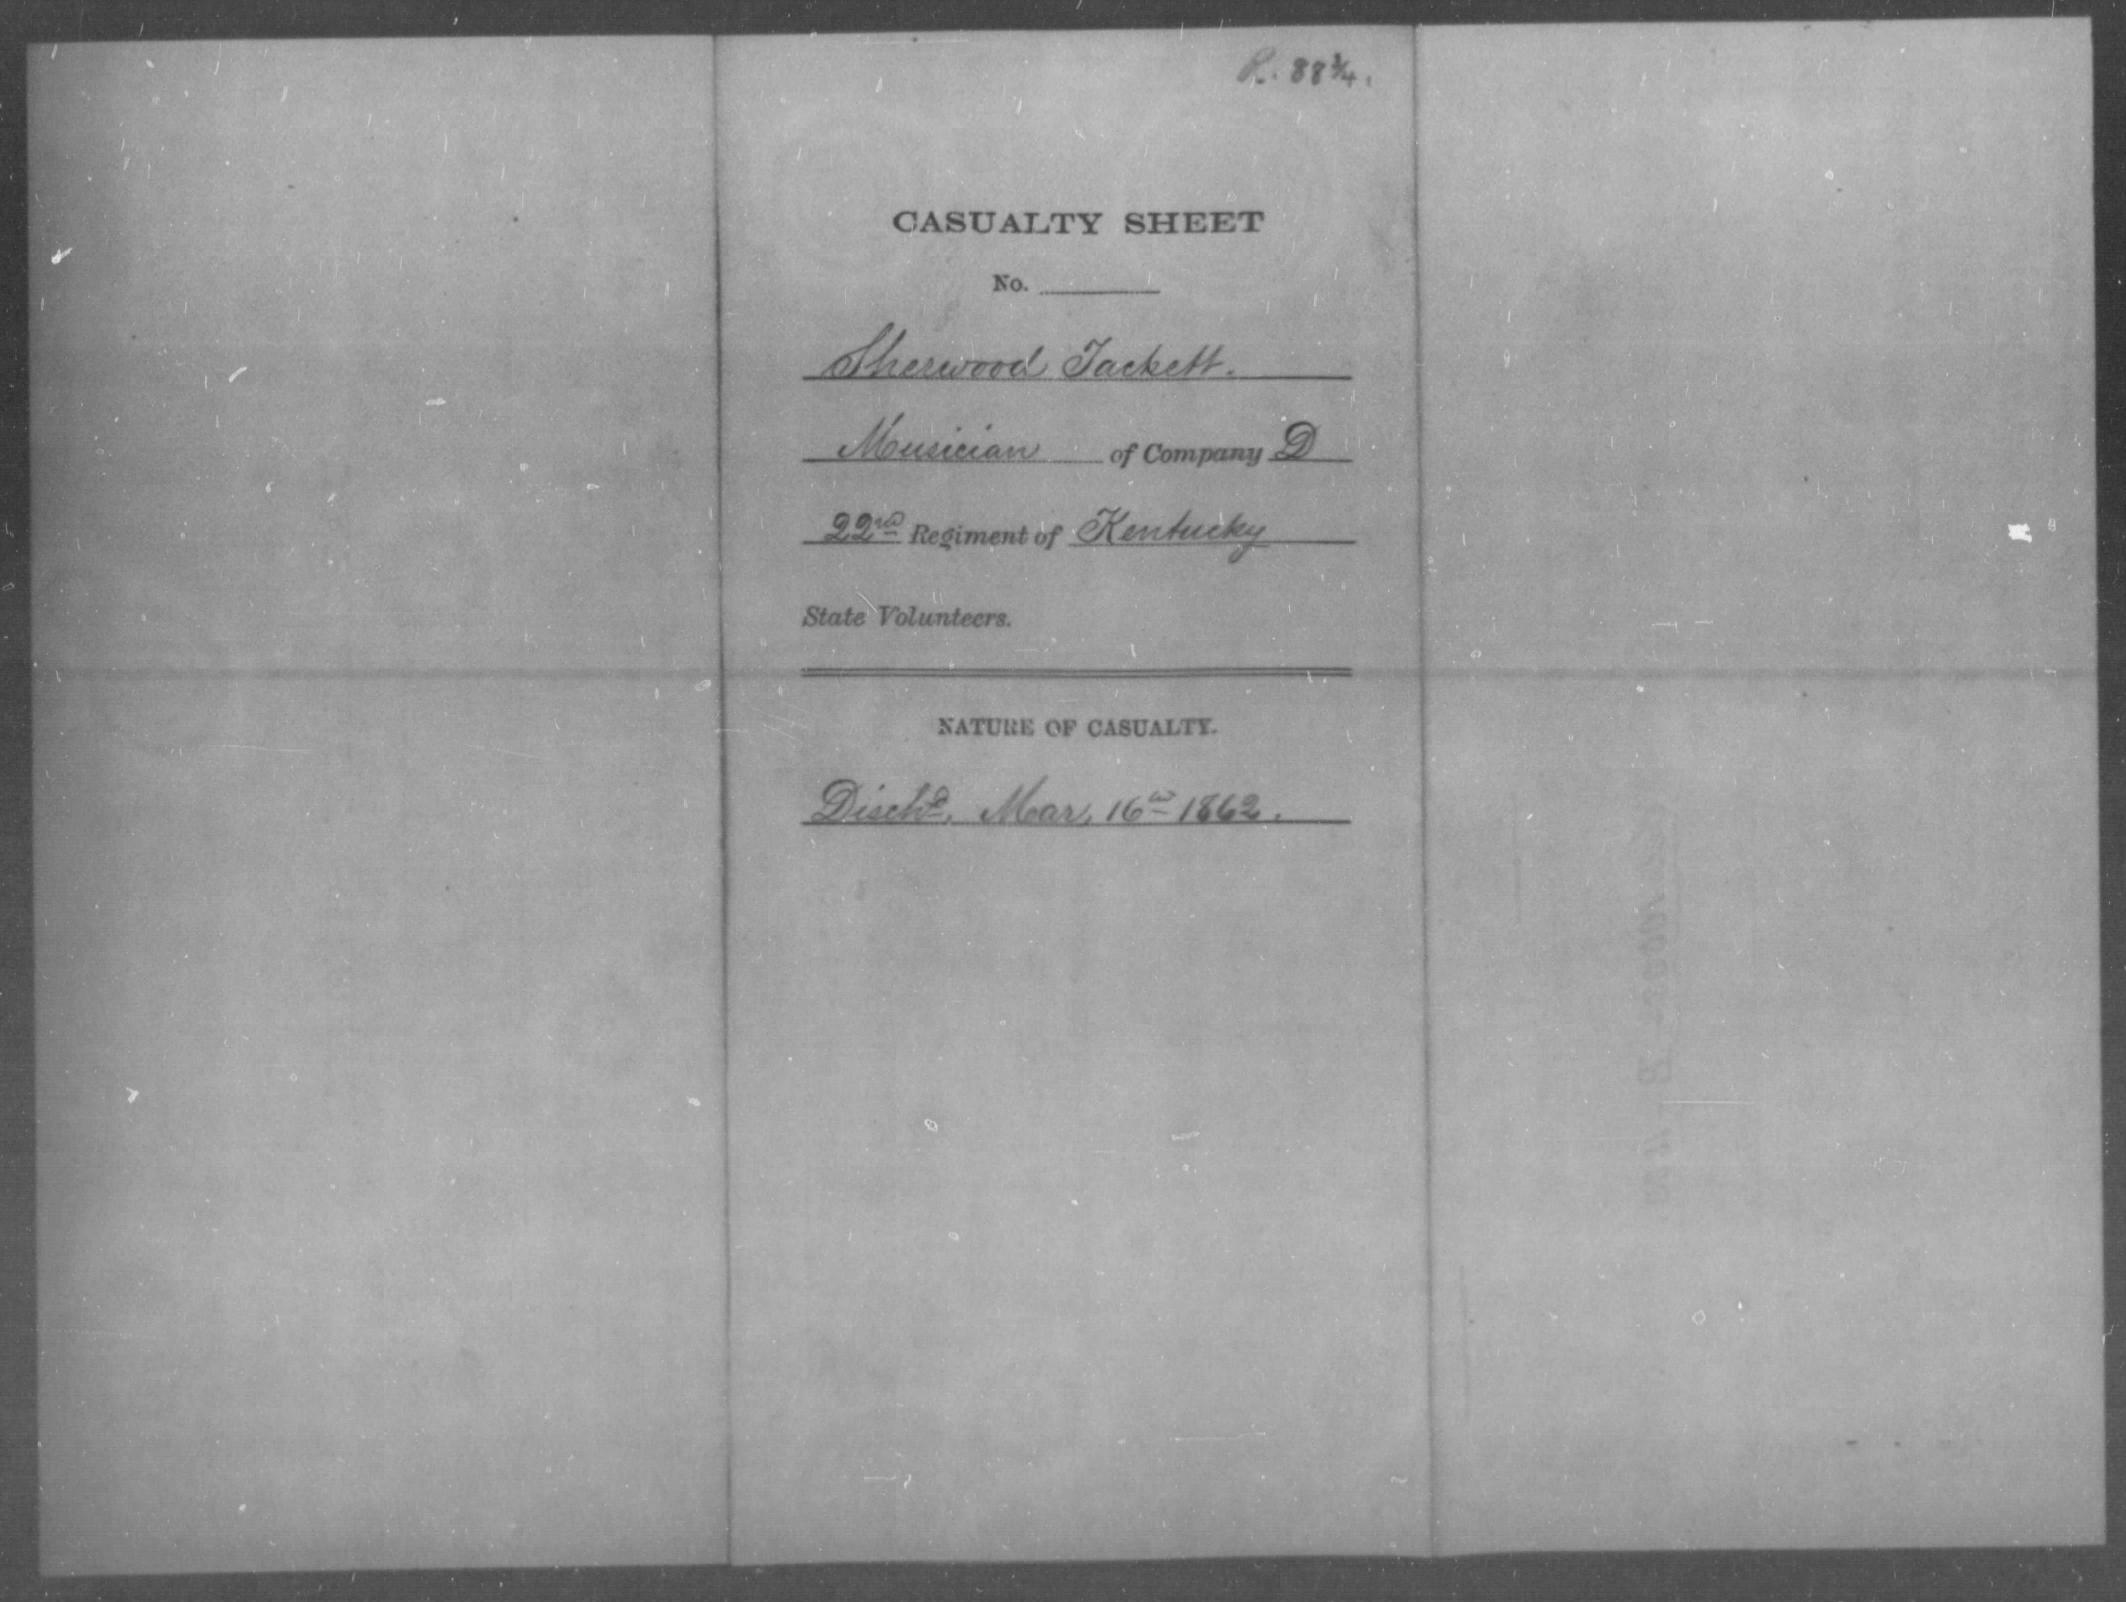 R. 88¾.
CASUALTY SHEET
No.
Sherwood Tackett.
Musician of Company D
22nd Regiment of Kentucky
State Volunteers.
NATURE OF CASUALTY.
Dischd. Mar. 16th 1862.